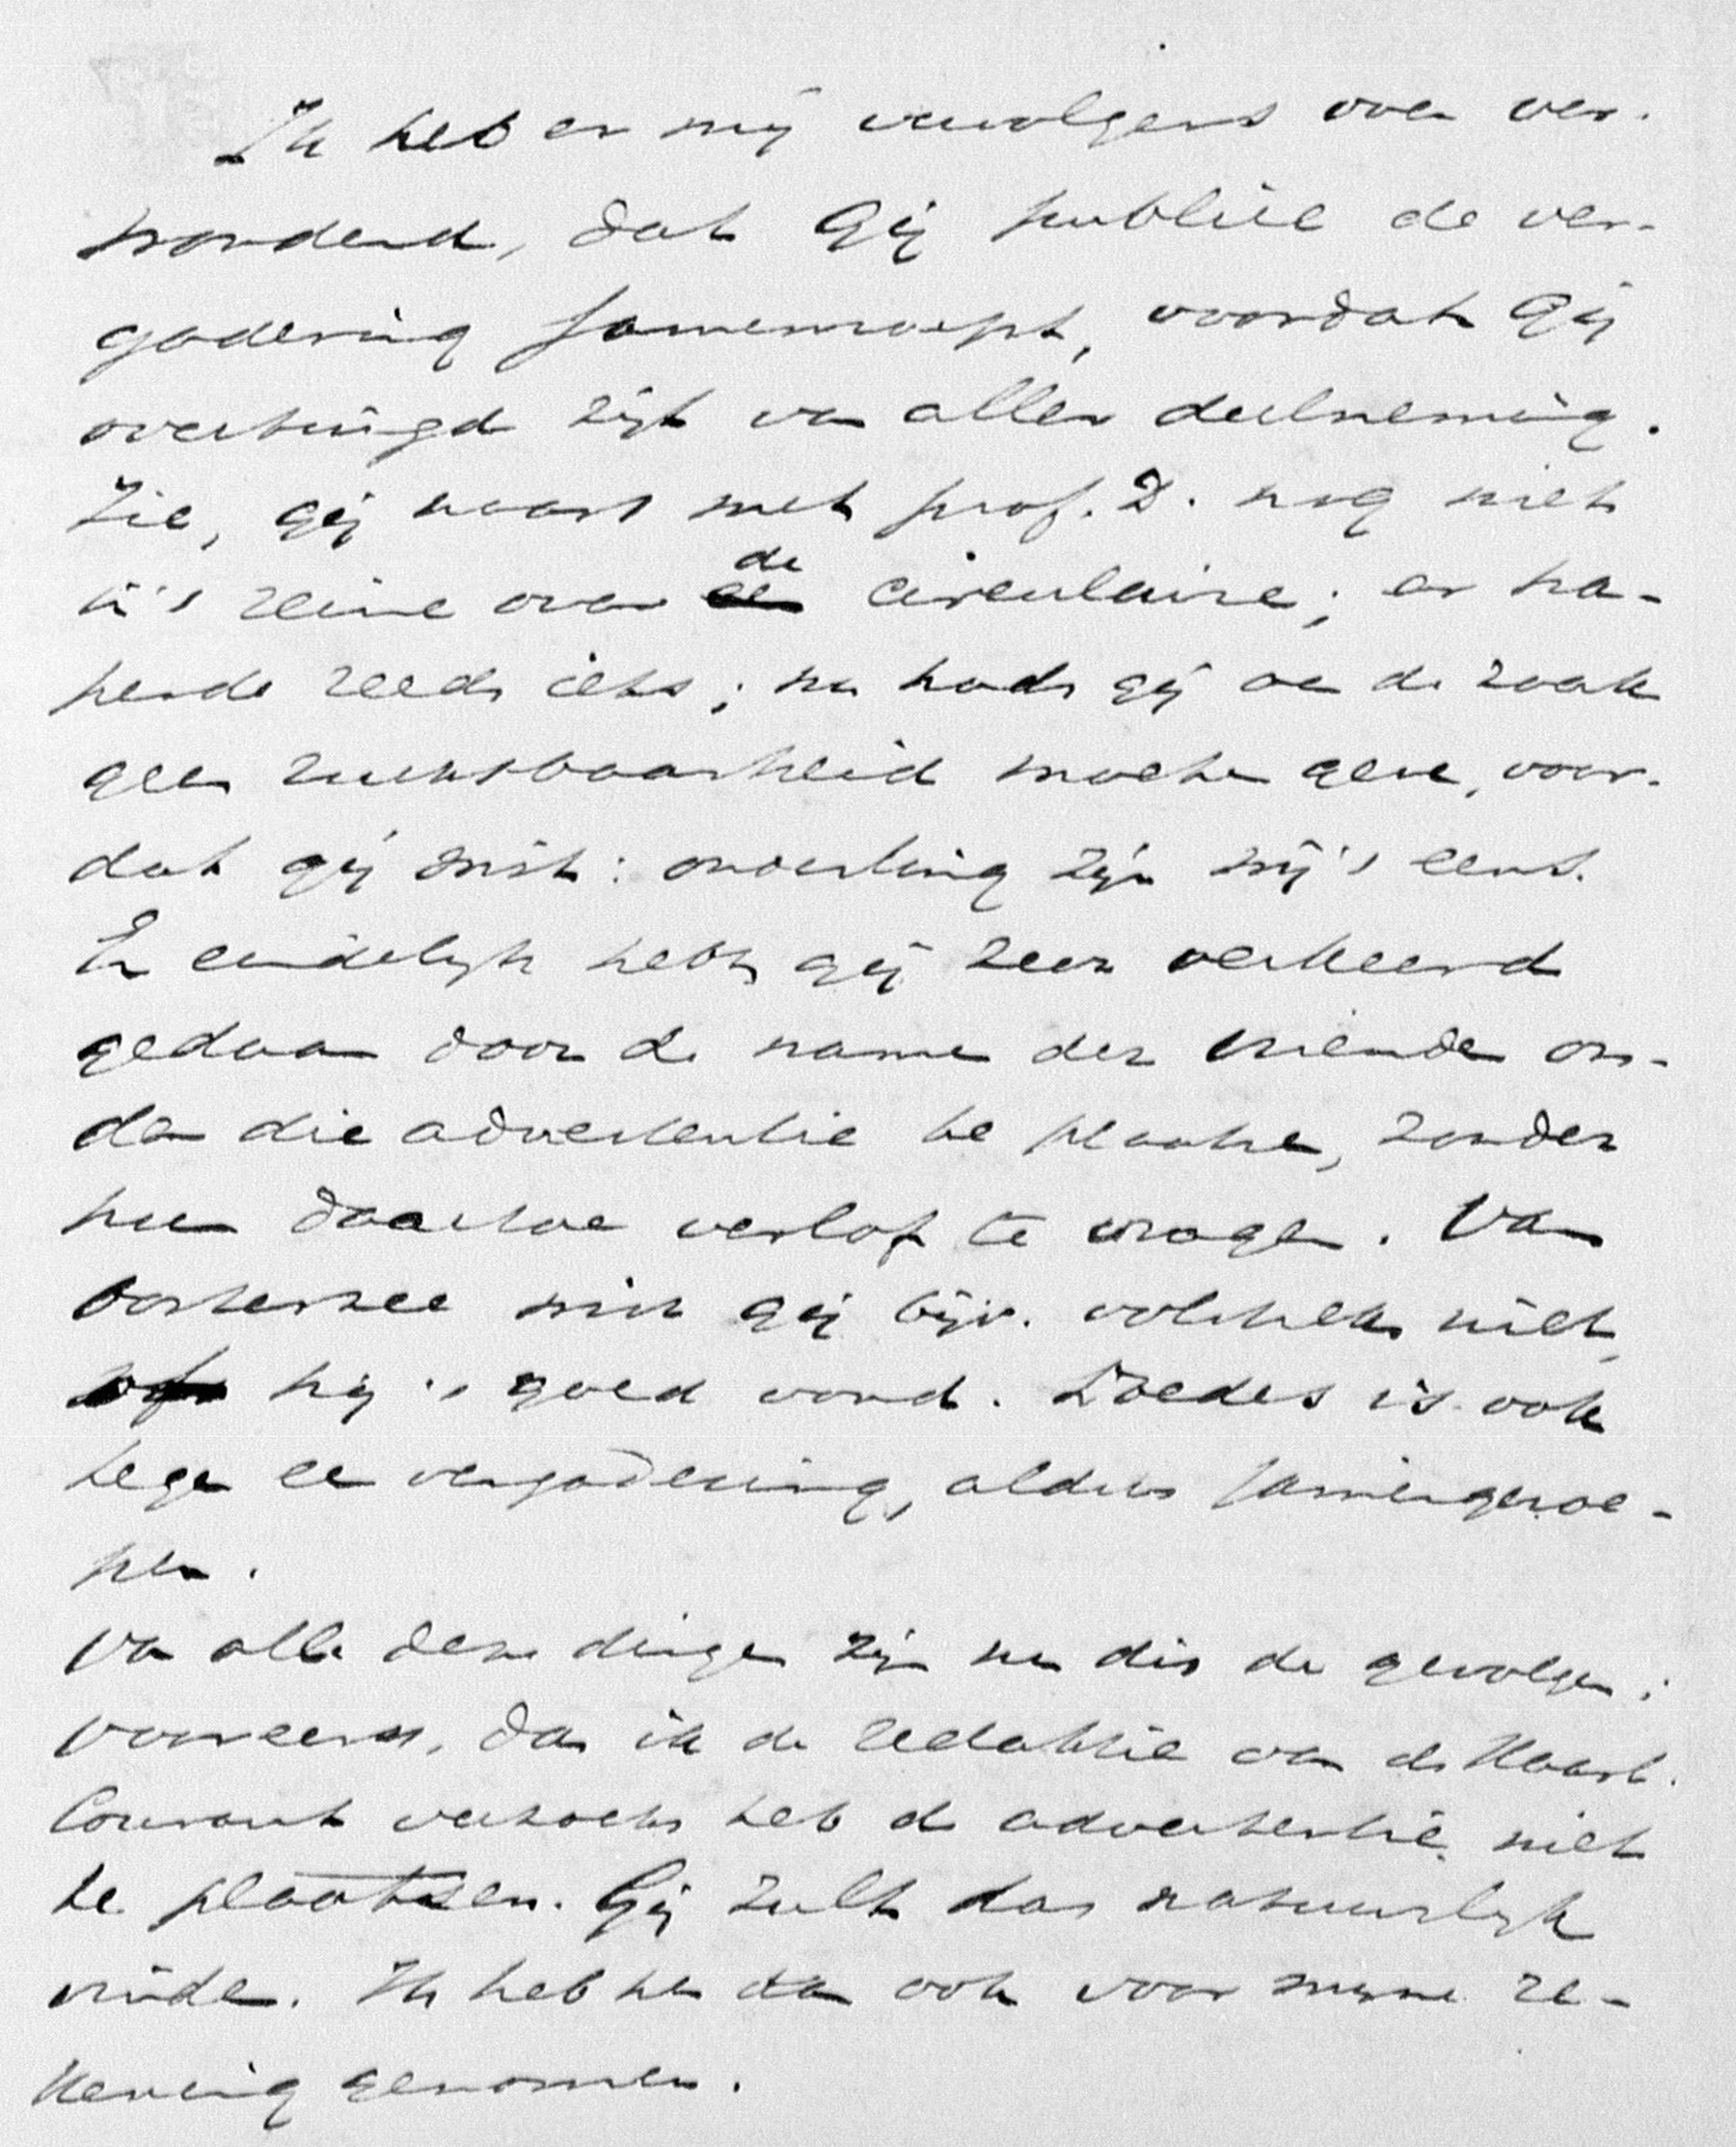 Ik heb er mij vervolgens over ver-
wonderd, dat Gij publiek de ver-
gadering samenroept, voordat Gij
overtuigd zijt van aller deelneming.
Zie, gij waart met prof. D. nog niet
in 's reine over de circulaire; er ha-
perde reeds iets; nu hadt gij aan de zaak
geen ruchtbaarheid moeten geven, voor-
dat gij wist: onderling zijn wij 't eens.
En eindelijk hebt gij zeer verkeerd
gedaan door de namen der vrienden on-
der die advertentie te plaatsen, zonder
hun daartoe verlof te vragen. Van
Oosterzee wist gij bijv. volstrekt niet,
of hij 't goed vond. Doedes is ook
tegen een vergadering, aldus samengeroe-
pen.
Van alle deze dingen zijn nu dit de gevolgen:
vooreerst, dat ik de redaktie van de Haarl.
Courant verzocht heb de advertentie niet
te plaatsen. Gij zult dat natuurlijk
vinden. Ik heb het dan ook voor mijne re-
kening genomen.